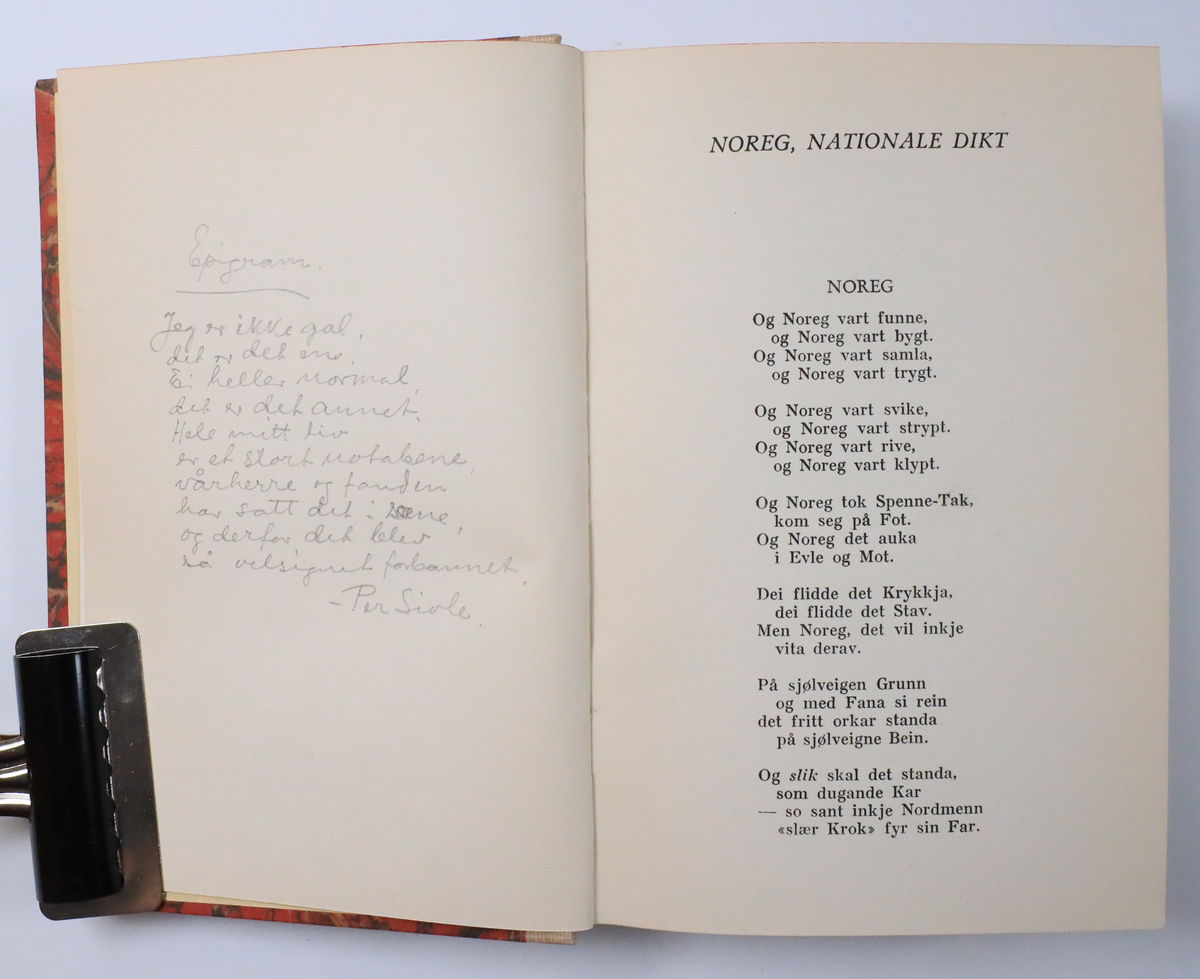 Epigram.
Jeg er ikke gal,
det er det ene.
Ei heller normal,
det er det annet.
Hele mitt liv
er et stort notabene,
vårherre og fanden
har satt det i scene,
og derfor det blev
så velsignet forbannet.
- Per Sivle.
NOREG, NATIONALE DIKT
NOREG
Og Noreg vart funne,
og Noreg vart bygt.
Og Noreg vart samla,
og Noreg vart trygt.
Og Noreg vart svike,
og Noreg vart strypt.
Og Noreg vart rive,
og Noreg vart klypt.
Og Noreg tok Spenne-Tak,
kom seg på Fot.
Og Noreg det auka
i Evle og Mot.
Dei flidde det Krykkja,
dei flidde det Stav.
Men Noreg, det vil inkje
vita derav.
På sjølveigen Grunn
og med Fana si rein
det fritt orkar standa
på sjølveigne Bein.
Og slik skal det standa,
som dugande Kar
— so sant inkje Nordmenn
«slær Krok» fyr sin Far.